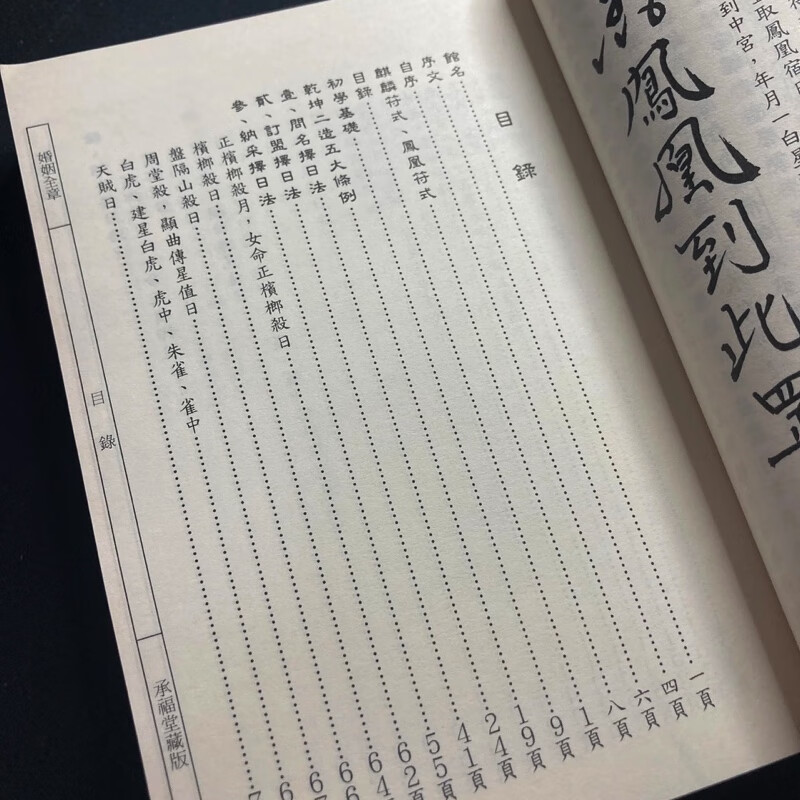 取鳳凰宿日
到中宮，年月一白星
鳳凰到此
目錄
館名……一頁
序文……四頁
自序……六頁
麒麟符式、鳳凰符式……八頁
目錄……1頁
初學基礎……9頁
乾坤二造五大條例……19頁
壹、問名擇日法……24頁
貳、訂盟擇日法……41頁
參、納采擇日法……55頁
正檳榔殺月，女命正檳榔殺日……62頁
檳榔殺日……64
盤隔山殺日……6
周堂殺，顯曲傳星值日……6
白虎、建星白虎、虎中、朱雀、雀中……6
天賊日……7
婚姻全章
目錄
承福堂藏版